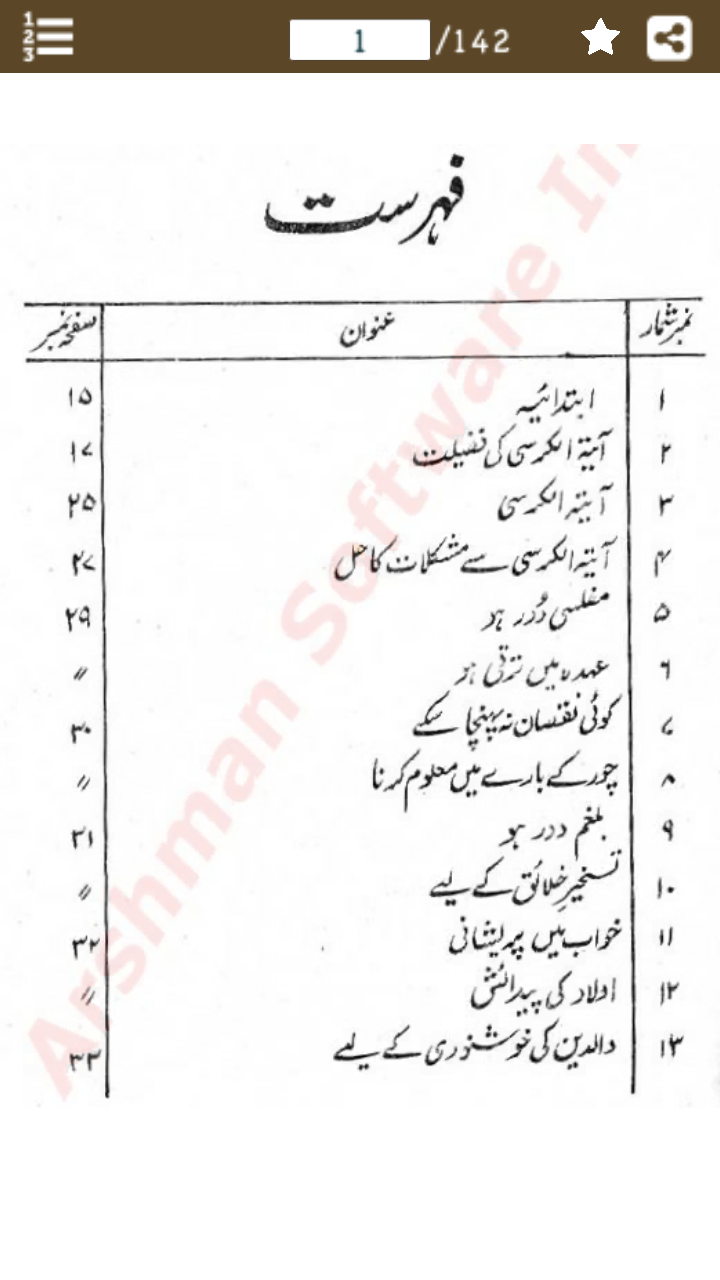 1
2
3
1 /142
فہرست
نمبر شمار عنوان صفحہ نمبر
۱ ابتدائیہ ۱۵
۲ آیۃ الکرسی کی فضیلت ۱۷
۳ آیۃ الکرسی ۲۵
۴ آیۃ الکرسی سے مشکلات کا حل ۲۷
۵ مفلسی دُور ہو ۲۹
۶ عہدہ میں ترقی ہو 〃
۷ کوئی نقصان نہ پہنچا سکے ۳۰
۸ چور کے بارے میں معلوم کرنا 〃
۹ بلغم دور ہو ۳۱
۱۰ تسخیرِ خلائق کے لیے 〃
۱۱ خواب میں پریشانی ۳۲
۱۲ اولاد کی پیدائش 〃
۱۳ والدین کی خوشنودی کے لیے ۳۳
Arshman Software In